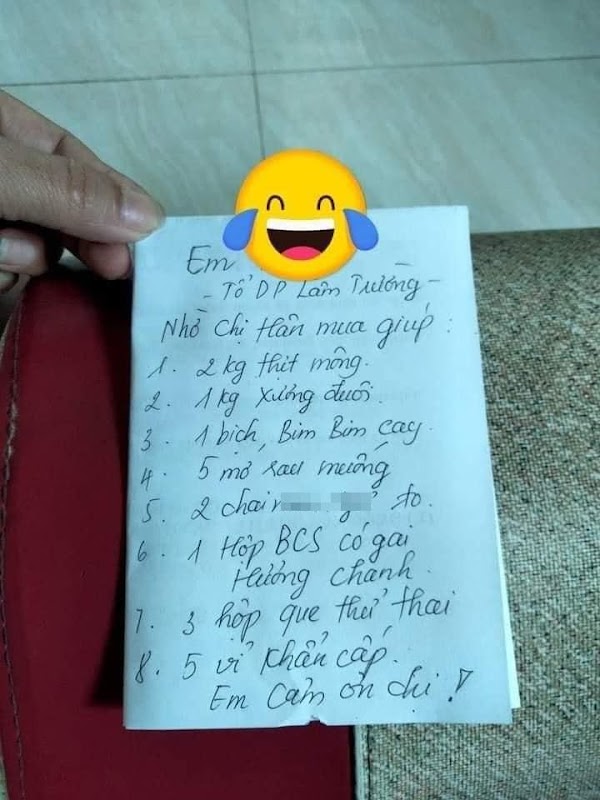 Em
- Tổ DP Lâm Trường -
Nhờ chị Hân mua giúp :
1. 2 kg thịt mông.
2. 1 kg xương đuôi.
3. 1 bịch Bim Bim cay.
4. 5 mớ rau muống
5. 2 chai to.
6. 1 Hộp BCS có gai
Hương chanh.
7. 3 hộp que thử thai
8. 5 vỉ khẩn cấp.
Em cảm ơn chị !